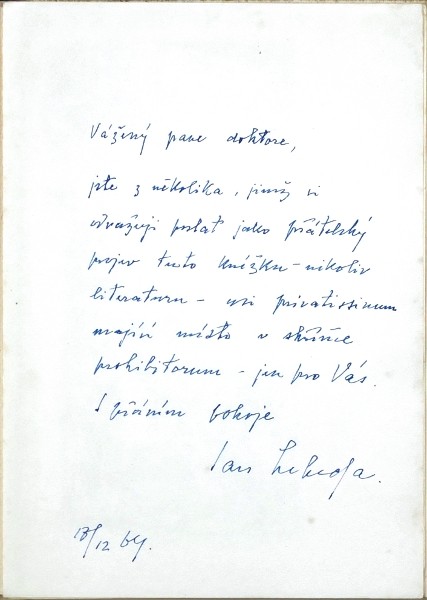 Vážený pane doktore,
jste z několika, jimž si
odvažuji poslat jako přátelský
projev tuto knížku – nikoliv
literaturu – usi privatissimum
mající místo v skříňce
prohibitorum – jen pro Vás.
S přáním pokoje
Jan Lebeda.
18/12 64.